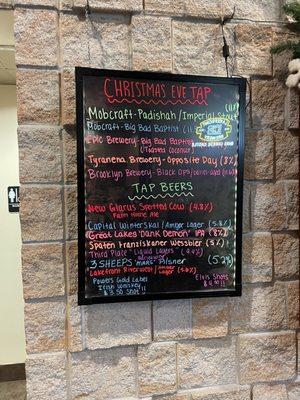 CHRISTMAS EVE TAP
Mobcraft-Padishah/Imperial Stout
Mobcraft-Big Bad Baptist (11
Epic Brewery-Big Bad Baptist
(Toasted Coconut)
Tyranena Brewery-Opposite Day (8%)
Brooklyn Brewery-Black Ops/
TAP BEERS
New Glarus Spotted Cow (4.8%)
Farm House Ale
Capital Winterskal/Amber Lager (5.8%)
Great Lakes "Dank Demon" IPA (8%)
Spaten Franziskaner Weissbier (5%)
Third Place "Liquid Layers"
3 SHEEPS Pilsner (5.2%)
Lakefront Riverwest/Amber Lager (5.6%)
Powers Gold Label
Irish Whiskey
$3.50 Shot!!
Elvis Shots